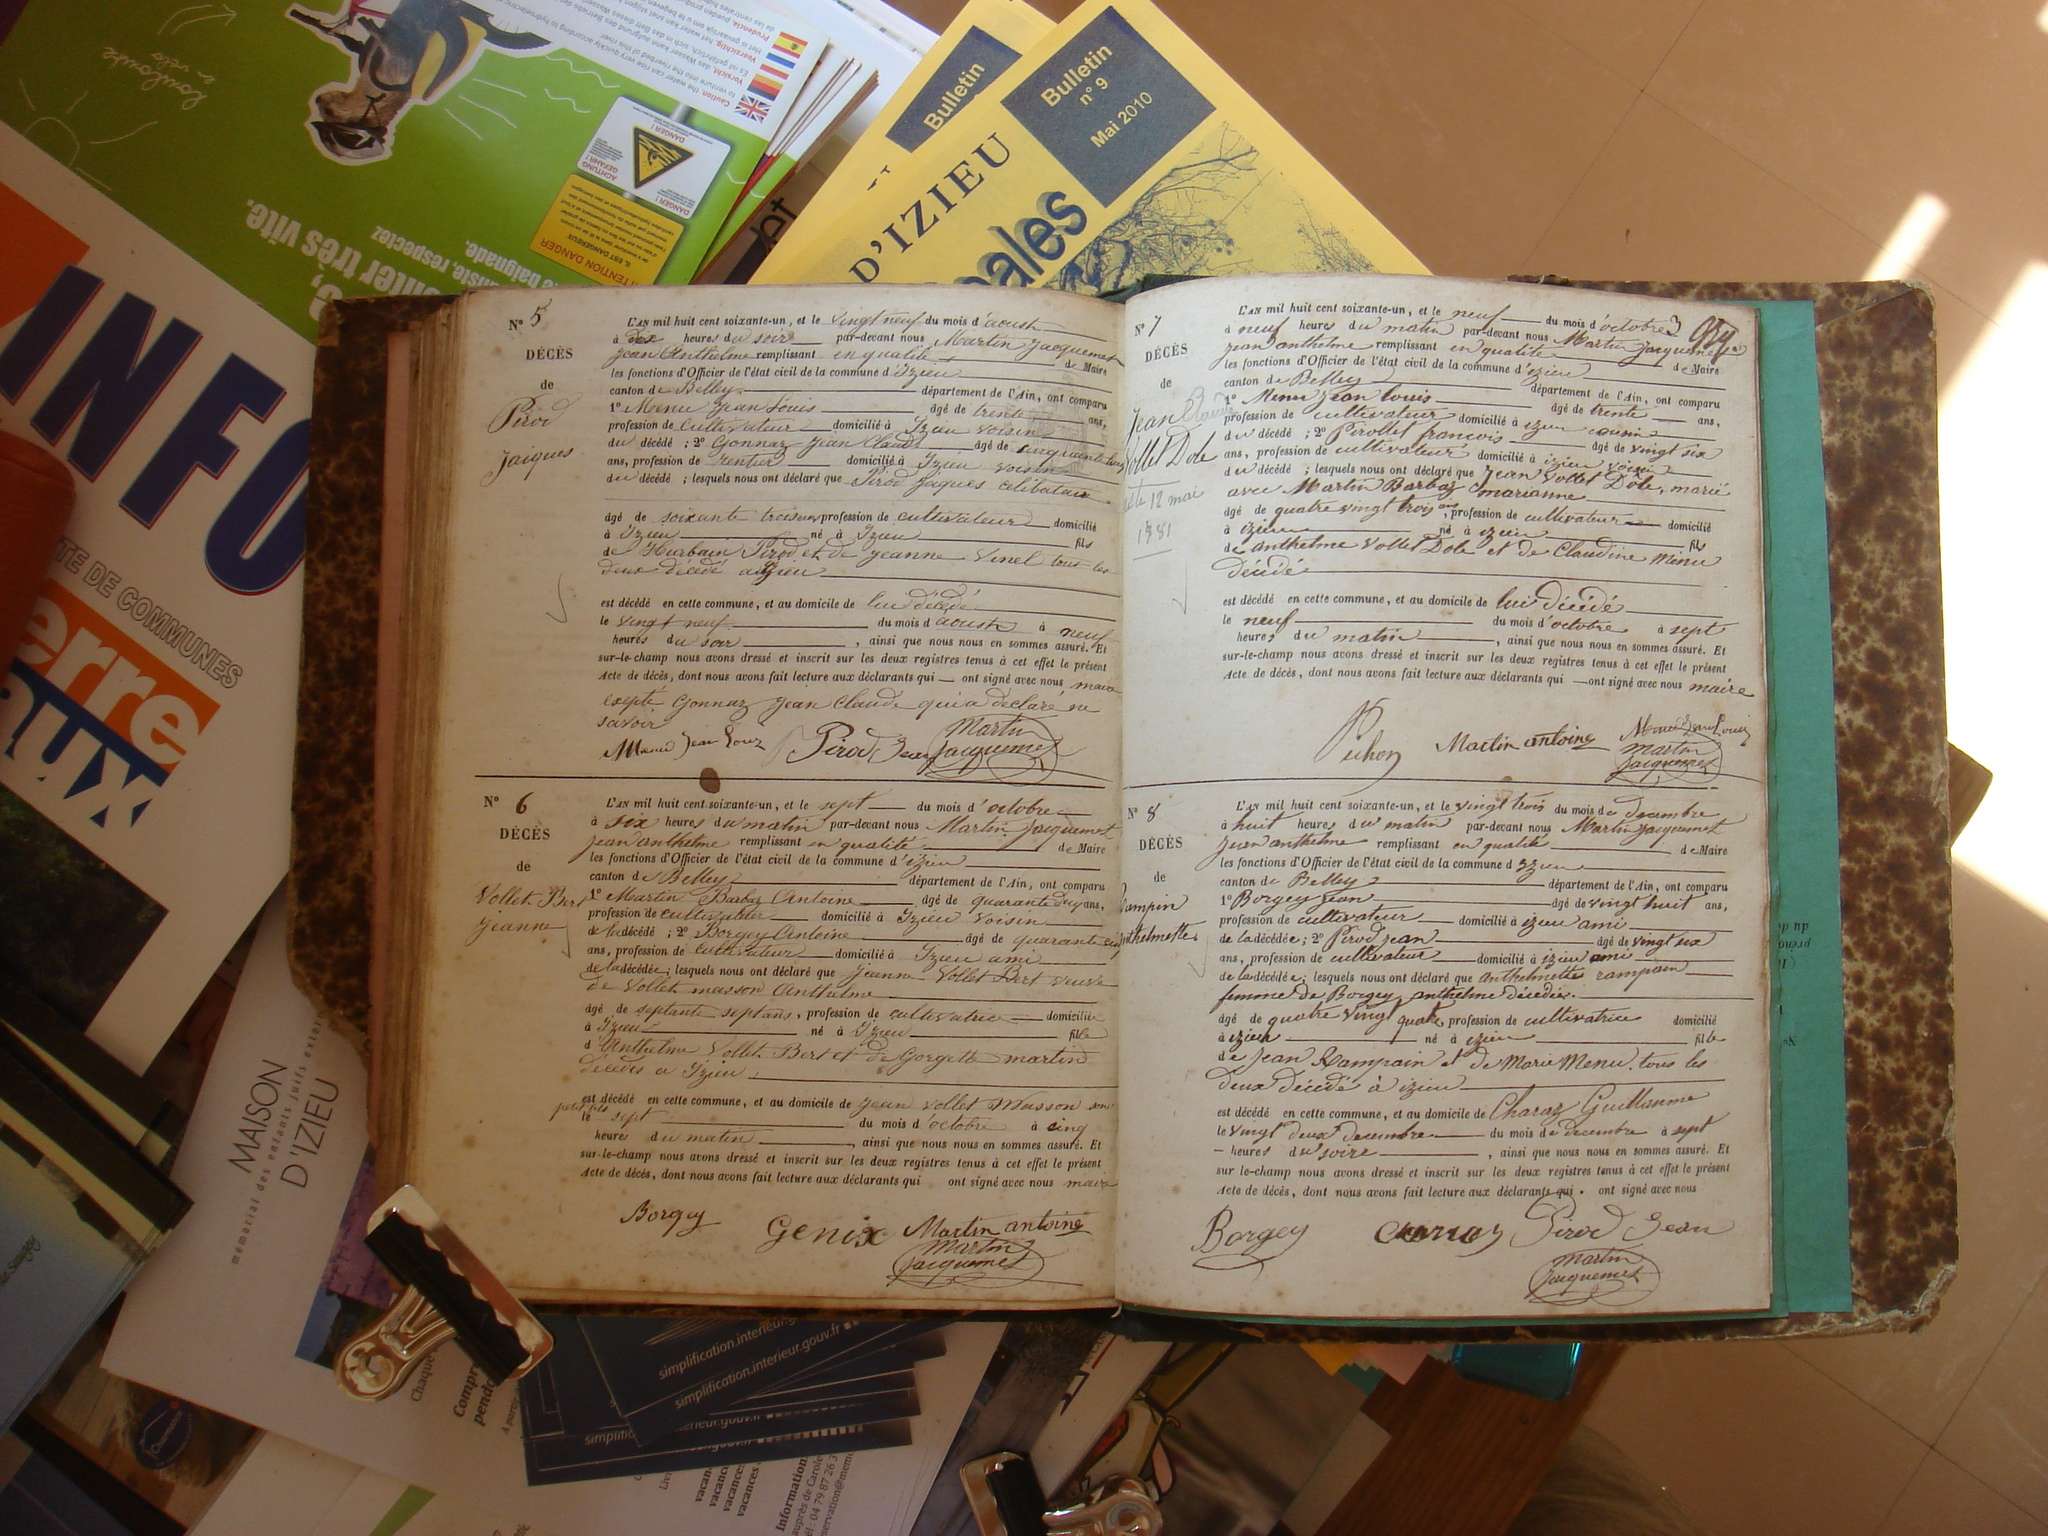 Bulletin
Bulletin
n° 9
Mai 2010
D'IZIEU
pales
INFO
TE DE COMMUNES
erre
aux
Toulouse
en vélo
très vite.
baignade.
DANGER !
ACHTUNG
GEFAHR !
DANGER !
ATTENTION DANGER
IL EST DANGEREUX
Caution, the water can rise very quickly according
to venture into the riverbed of this river
N° 5
DÉCÈS
de
Pirod
Jacques
L'AN mil huit cent soixante-un, et le vingt neuf du mois d'aoust
à dix heures du soir par-devant nous Martin Jacquemet
Jean Anthelme remplissant en qualité de Maire
les fonctions d'Officier de l'état civil de la commune d'Izieu
canton de Belley département de l'Ain, ont comparu
1° Menu Jean Louis âgé de trente ans,
profession de cultivateur domicilié à Izieu voisin
du décédé ; 2° Gonnaz Jean Claude âgé de
ans, profession de rentier domicilié à Izieu voisin
du décédé ; lesquels nous ont déclaré que Pirod Jaques celibataire
âgé de soixante trois ans profession de cultivateur domicilié
à Izieu né à Izieu fils
de Hurbain Pirod et de Jeanne Vinel tous les
deux décédé a Izieu
est décédé en cette commune, et au domicile de lui décédé
le vingt neuf du mois d'aoust à neuf
heures du soir , ainsi que nous nous en sommes assuré. Et
sur-le-champ nous avons dressé et inscrit sur les deux registres tenus à cet effet le présent
Acte de décès, dont nous avons fait lecture aux déclarants qui — ont signé avec nous maire
exepté Gonnaz Jean Claude qui a déclaré ne
savoir
Menu Jean Louis Pirod Jean Martin
Jacquemet
N° 6
DÉCÈS
de
Vollet Bert
Jeanne
L'AN mil huit cent soixante-un, et le sept du mois d'octobre
à six heures du matin par-devant nous Martin Jacquemet
Jean anthelme remplissant en qualité de Maire
les fonctions d'Officier de l'état civil de la commune d'izieu
canton de Belley département de l'Ain, ont comparu
1° Martin Barbaz Antoine âgé de quarante deux ans,
profession de cultivateur domicilié à Izieu voisin
de la décédé ; 2° Borgey Antoine âgé de quarante cinq
ans, profession de cultivateur domicilié à Izieu ami
de la décédée ; lesquels nous ont déclaré que Jeanne Vollet Bert veuve
de Vollet masson Anthelme
âgé de septante sept ans, profession de cultivatrice domicilié
à Izieu né à Izieu fille
d'Anthelme Vollet Bert et de Gorgette martin
décédés a Izieu
est décédé en cette commune, et au domicile de Jean vollet Masson son
petit fils
le sept du mois d'octobre à cinq
heures du matin , ainsi que nous nous en sommes assuré. Et
sur-le-champ nous avons dressé et inscrit sur les deux registres tenus à cet effet le présent
Acte de décès, dont nous avons fait lecture aux déclarants qui ont signé avec nous maire
Borgey Genix Martin antoine
Martin
Jacquemet
N° 7
DÉCÈS
de
Jean
Vollet Dole
12 mai
1981
L'AN mil huit cent soixante-un, et le neuf du mois d'octobre
à neuf heures du matin par-devant nous Martin Jacquemet
Jean anthelme remplissant en qualité de Maire
les fonctions d'Officier de l'état civil de la commune d'izieu
canton de Belley département de l'Ain, ont comparu
1° Menu Jean louis âgé de trente ans,
profession de cultivateur domicilié à izieu cousin
du décédé ; 2° Pirollet françois âgé de vingt six
ans, profession de cultivateur domicilié à izieu voisin
du décédé ; lesquels nous ont déclaré que Jean Vollet Dole, marié
avec Martin Barbaz marianne
âgé de quatre vingt trois ans, profession de cultivateur domicilié
à izieu né à izieu fils
de anthelme Vollet Dole et de Claudine Menu
décédé
est décédé en cette commune, et au domicile de lui décédé
le neuf du mois d'octobre à sept
heures du matin , ainsi que nous nous en sommes assuré. Et
sur-le-champ nous avons dressé et inscrit sur les deux registres tenus à cet effet le présent
Acte de décès, dont nous avons fait lecture aux déclarants qui — ont signé avec nous maire
Pichon Martin antoine Menu Jean Louis
martin
Jacquemet
N° 8
DÉCÈS
de
Rampin
Anthelmette
L'AN mil huit cent soixante-un, et le vingt trois du mois de decembre
à huit heures du matin par-devant nous Martin Jacquemet
Jean anthelme remplissant en qualité de Maire
les fonctions d'Officier de l'état civil de la commune d izieu
canton de Belley département de l'Ain, ont comparu
1° Borgey Jean âgé de vingt huit ans,
profession de cultivateur domicilié à izieu ami
de la décédée ; 2° Pirod jean âgé de vingt six
ans, profession de cultivateur domicilié à izieu ami
de la décédée ; lesquels nous ont déclaré que anthelmette rampain
femme de Borgey anthelme décédée.
âgé de quatre vingt quatre, profession de cultivatrice domicilié
à izieu né à izieu fille
de Jean Rampain et de Marie Menu. tous les
deux décédé à izieu
est décédé en cette commune, et au domicile de Charaz Guillaume
le vingt deux decembre du mois de decembre à sept
heures du soire , ainsi que nous nous en sommes assuré. Et
sur-le-champ nous avons dressé et inscrit sur les deux registres tenus à cet effet le présent
Acte de décès, dont nous avons fait lecture aux déclarants qui . ont signé avec nous
Borgey Pirod Jean
martin
Jacquemet
MAISON
D'IZIEU
mémorial des enfants juifs
simplification.interieur.gouv.fr
simplification.interieur.gouv.fr
Chaque